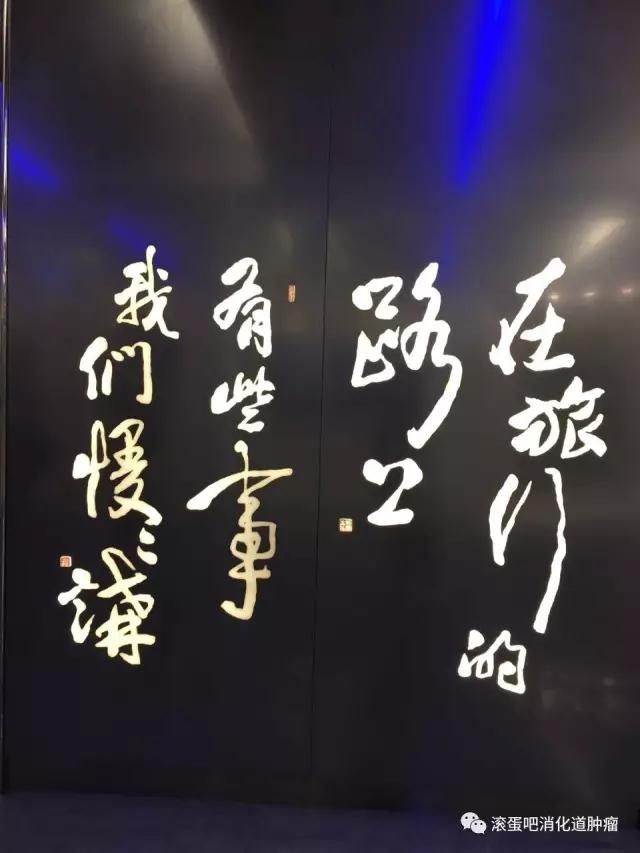 在旅行的
路上
有些事
我们慢〻讲
滚蛋吧消化道肿瘤